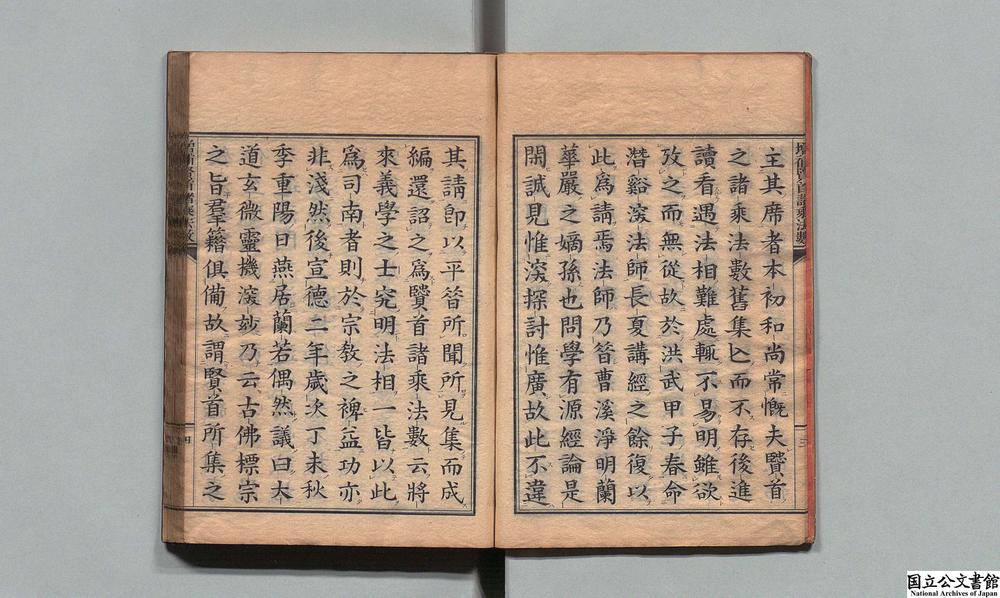 主其席者本初和尚常慨夫賢首
之諸乘法數舊集亡而不存後進
讀看遇法相難處輒不易明雖欲
攷之而無從故於洪武甲子春命
潛谿深法師長夏講經之餘復以
此為請焉法師乃昝曹溪淨明蘭
華嚴之嫡孫也問學有源經論是
閑誠見惟深探討惟廣故此不違
其請卽以平昝所聞所見集而成
編還詔之爲賢首諸乘法數云將
來義學之士究明法相一皆以此
爲司南者則於宗敎之裨益功亦
非淺然後宣德二年歲次丁未秋
季重陽日燕居蘭若偶然議曰大
道玄微靈機深妙乃云古佛標宗
之旨羣籍俱備故謂賢首所集之
三
四
国立公文書館
National Archives of Japan